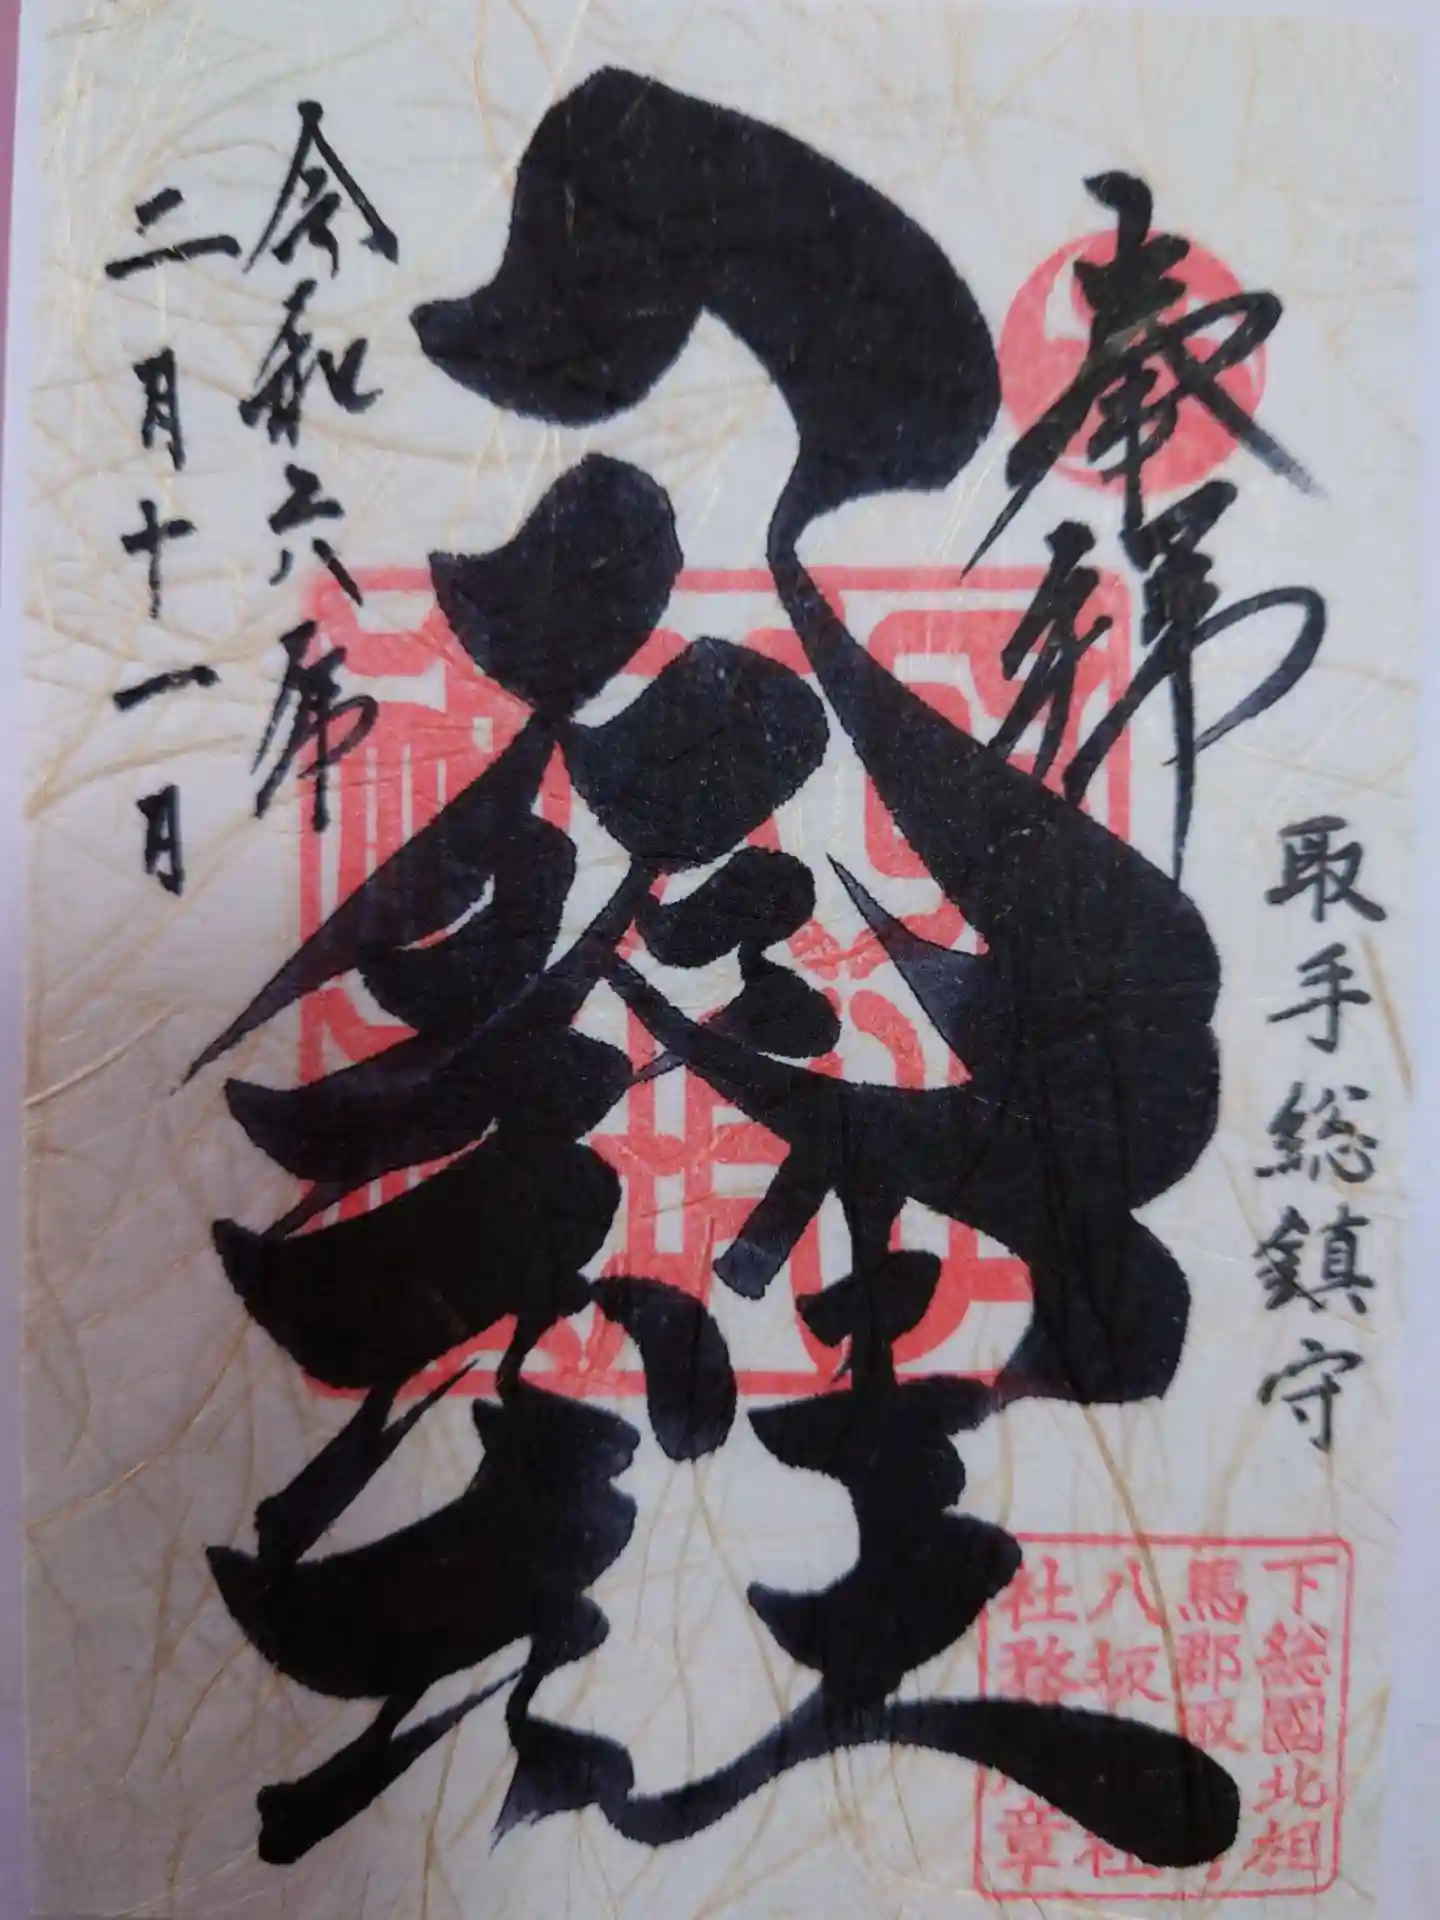 奉拝
取手総鎮守
八坂神社
令和六年
二月十一日
下総國北相
馬郡取
八坂
社務
章